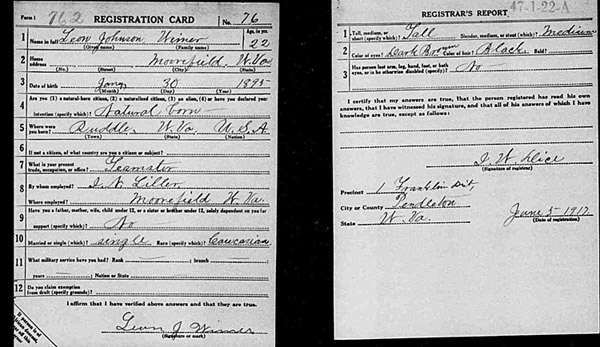 Form 1 762 REGISTRATION CARD No. 76
1 Name in full Leon Johnson Wimer Age, in yrs. 22
(Given name) (Family name)
2 Home address Moorefield, W.Va
(No.) (Street) (City) (State)
3 Date of birth Jany 30 1895
(Month) (Day) (Year)
4 Are you (1) a natural-born citizen, (2) a naturalized citizen, (3) an alien, (4) or have you declared your
intention (specify which)? Natural born
5 Where were you born? Ruddle W.Va, U.S.A
(Town) (State) (Nation)
6 If not a citizen, of what country are you a citizen or subject?
7 What is your present trade, occupation, or office? Teamster
8 By whom employed?
Where employed? Moorefield W.Va.
9 Have you a father, mother, wife, child under 12, or a sister or brother under 12, solely dependent on you for
support (specify which)? No
10 Married or single (which)? single Race (specify which)? Caucasian
11 What military service have you had? Rank ; branch ;
years ; Nation or State
12 Do you claim exemption from draft (specify grounds)?
I affirm that I have verified above answers and that they are true.
Leon J Wimer
(Signature or mark)
If person is of
REGISTRAR'S REPORT 47-1-22-A
1 Tall, medium, or short (specify which)? Tall Slender, medium, or stout (which)? Medium
2 Color of eyes? Dark Brown Color of hair? Black Bald?
3 Has person lost arm, leg, hand, foot, or both eyes, or is he otherwise disabled (specify)? No
I certify that my answers are true, that the person registered has read his own
answers, that I have witnessed his signature, and that all of his answers of which I have
knowledge are true, except as follows:
(Signature of registrar)
Precinct 1 Franklin Dist,
City or County Pendleton
State W.Va. June 5-1917
(Date of registration)